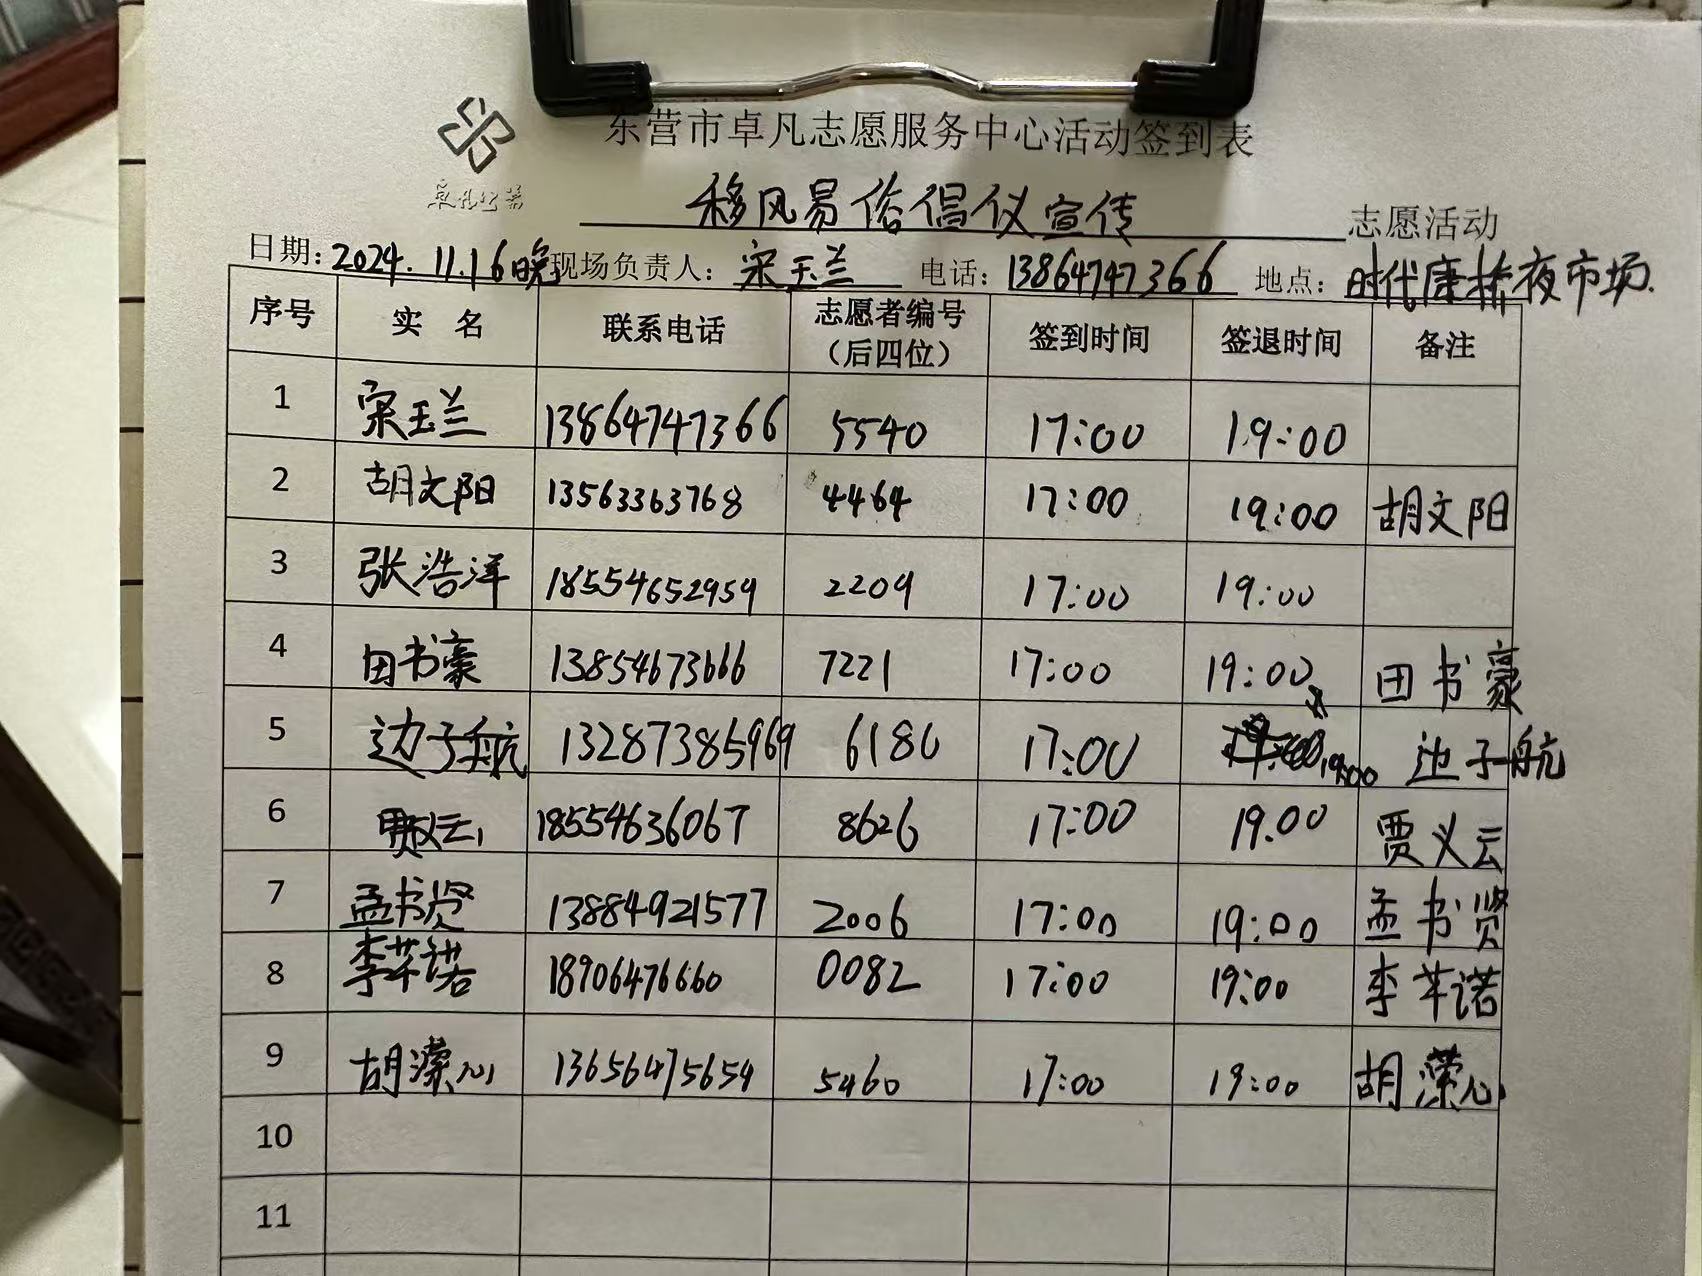 东营市卓凡志愿服务中心活动签到表
卓凡公益
移风易俗倡仪宣传 志愿活动
日期：2024.11.16晚 现场负责人：宋玉兰 电话：13864747366 地点：时代康桥夜市场.
序号 实 名 联系电话 志愿者编号（后四位） 签到时间 签退时间 备注
1 宋玉兰 13864747366 5540 17:00 19:00
2 胡文阳 13563363768 4464 17:00 19:00 胡文阳
3 张浩洋 18554652959 2209 17:00 19:00
4 田书豪 13854673666 7221 17:00 19:00 田书豪
5 边子航 13287385969 6180 17:00 19:00 边子航
6 贾义云 18554636067 8626 17:00 19.00 贾义云
7 孟书贤 13884921577 2006 17:00 19:00 孟书贤
8 李芊诺 18906476660 0082 17:00 19:00 李芊诺
9 胡潆心 13656475654 5460 17:00 19:00 胡潆心
10
11